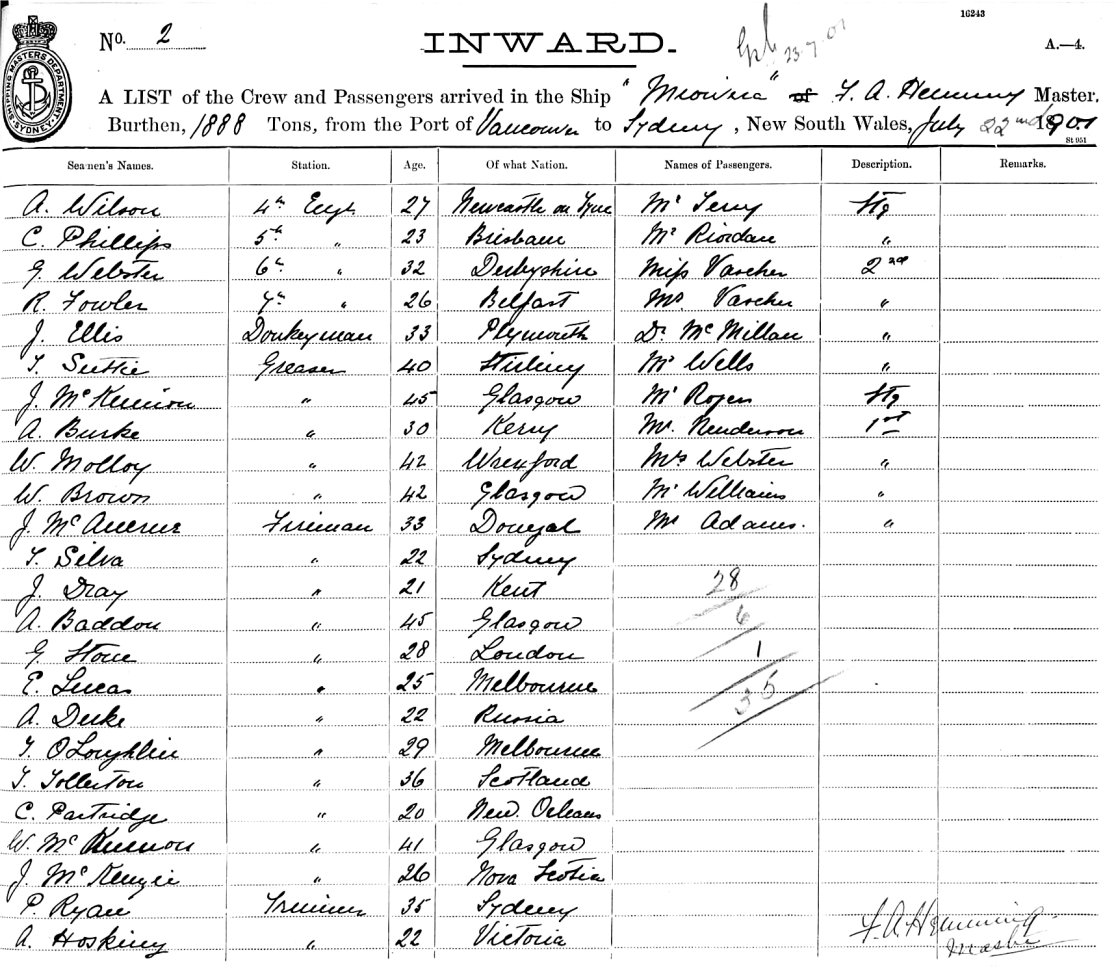 16243
No. 2
INWARD.
23.7.01
A.—4.
SHIPPING MASTERS DEPARTMENT SYDNEY
A LIST of the Crew and Passengers arrived in the Ship "Miowera" F. A. Hemming Master,
Burthen, 1888 Tons, from the Port of Vancouver to Sydney, New South Wales, July 22nd 1901
St 951
Seamen's Names. Station. Age. Of what Nation. Names of Passengers. Description. Remarks.
A. Wilson 4th Engr 27 Newcastle on Tyne Mr Terry Stg
C. Phillips 5th " 23 Brisbane Mr Riordan "
G. Webster 6th " 32 Derbyshire Miss Varcher 2nd
R. Fowler 7th " 26 Belfast Mrs Varcher "
J. Ellis Donkeyman 33 Plymouth Dr McMillan "
T. Suttie Greaser 40 Stirling Mr Wells "
J. McKinnon " 45 Glasgow Mr Rogers Stg
A. Burke " 30 Kerry Mr. Henderson 1st
W. Molloy " 42 Wrexford Mrs Webster "
W. Brown " 42 Glasgow Mr Williams "
J. Mc Fireman 33 Donegal Mr Adams. "
T. Silva " 22 Sydney
J. Dray " 21 Kent 28
A. Baddon " 45 Glasgow 6
G. Stone " 28 London 1
E. Lucas " 25 Melbourne 35
A. Duke " 22 Russia
T. O'Loughlin " 29 Melbourne
T. Tollerton " 36 Scotland
C. Partridge " 20 New Orleans
W. McKinnon " 41 Glasgow
J. McKenzie " 26 Nova Scotia
P. Ryan Trimmer 35 Sydney
A. Hosking " 22 Victoria
F. A. Hemming
Master